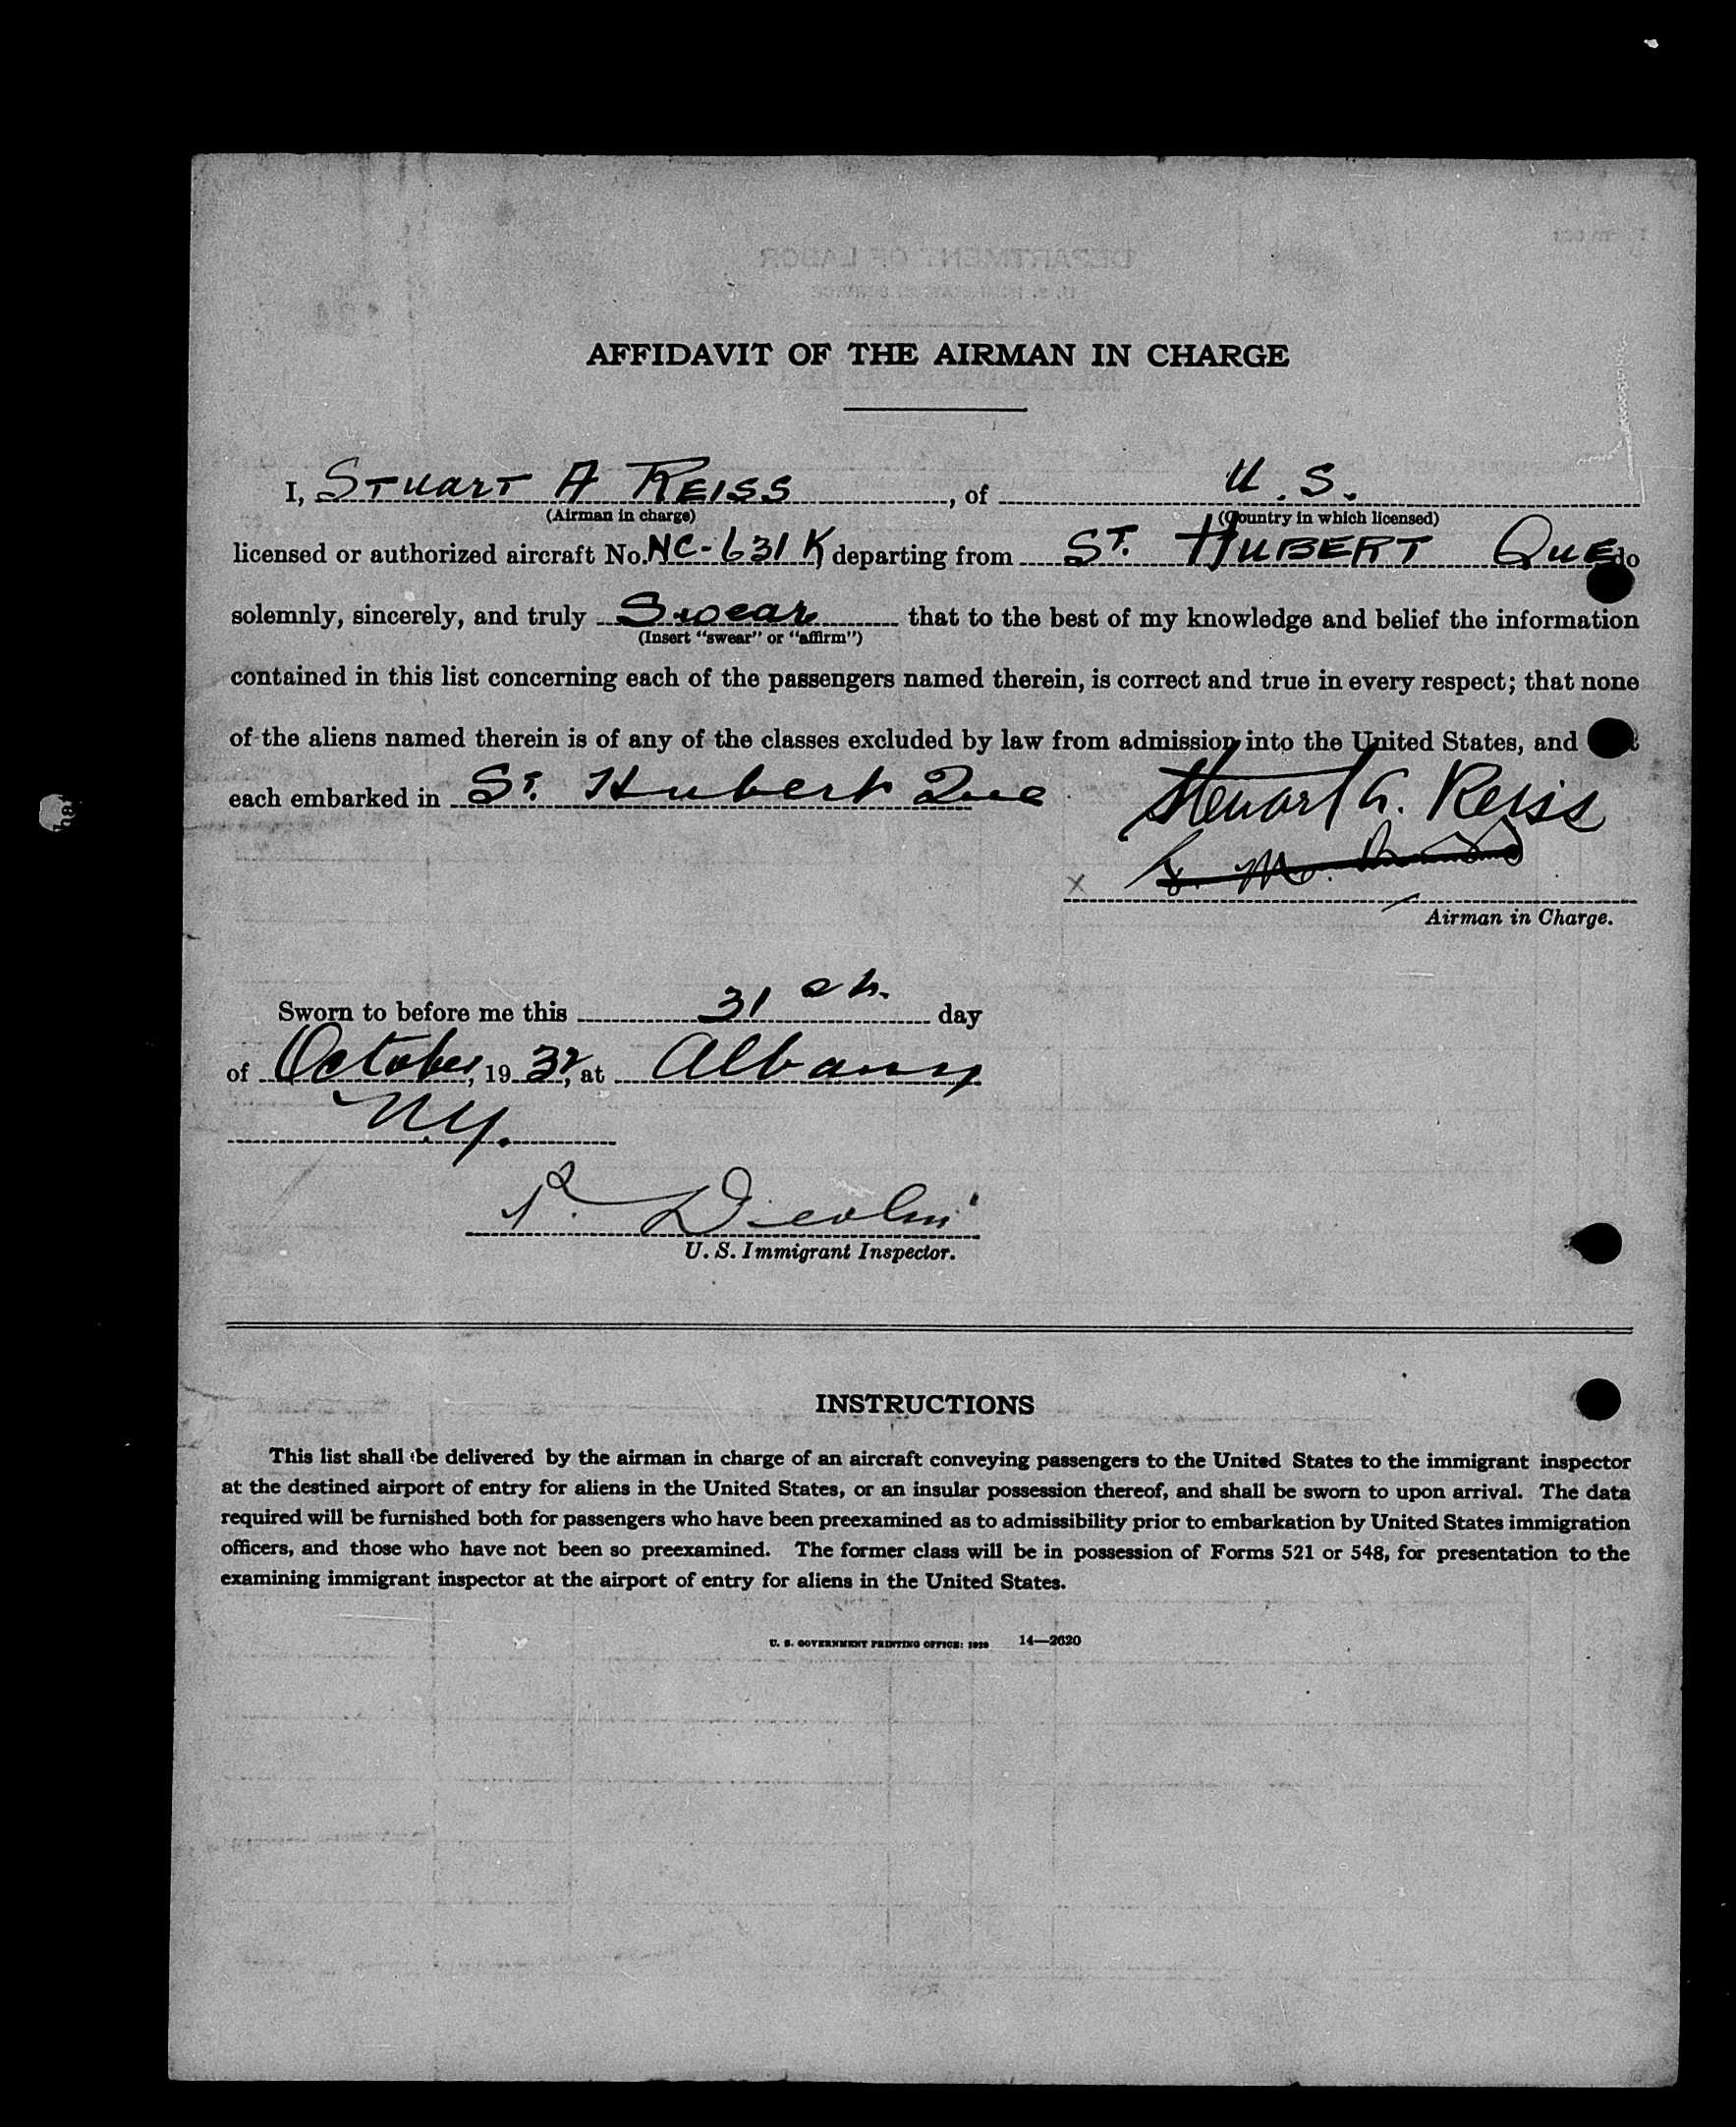 AFFIDAVIT OF THE AIRMAN IN CHARGE
I, STUART A REISS, of U.S.
(Airman in charge) (Country in which licensed)
licensed or authorized aircraft No. NC-631K, departing from ST. HUBERT QUE do
solemnly, sincerely, and truly Swear that to the best of my knowledge and belief the information
(Insert "swear" or "affirm")
contained in this list concerning each of the passengers named therein, is correct and true in every respect; that none
of the aliens named therein is of any of the classes excluded by law from admission into the United States, and
each embarked in St. Hubert Que
Stuart A. Reiss
X
Airman in Charge.
Sworn to before me this 31 day
of October, 1932, at Albany
N.Y.
U. S. Immigrant Inspector.
INSTRUCTIONS
This list shall be delivered by the airman in charge of an aircraft conveying passengers to the United States to the immigrant inspector
at the destined airport of entry for aliens in the United States, or an insular possession thereof, and shall be sworn to upon arrival. The data
required will be furnished both for passengers who have been preexamined as to admissibility prior to embarkation by United States immigration
officers, and those who have not been so preexamined. The former class will be in possession of Forms 521 or 548, for presentation to the
examining immigrant inspector at the airport of entry for aliens in the United States.
U. S. GOVERNMENT PRINTING OFFICE: 14—2620